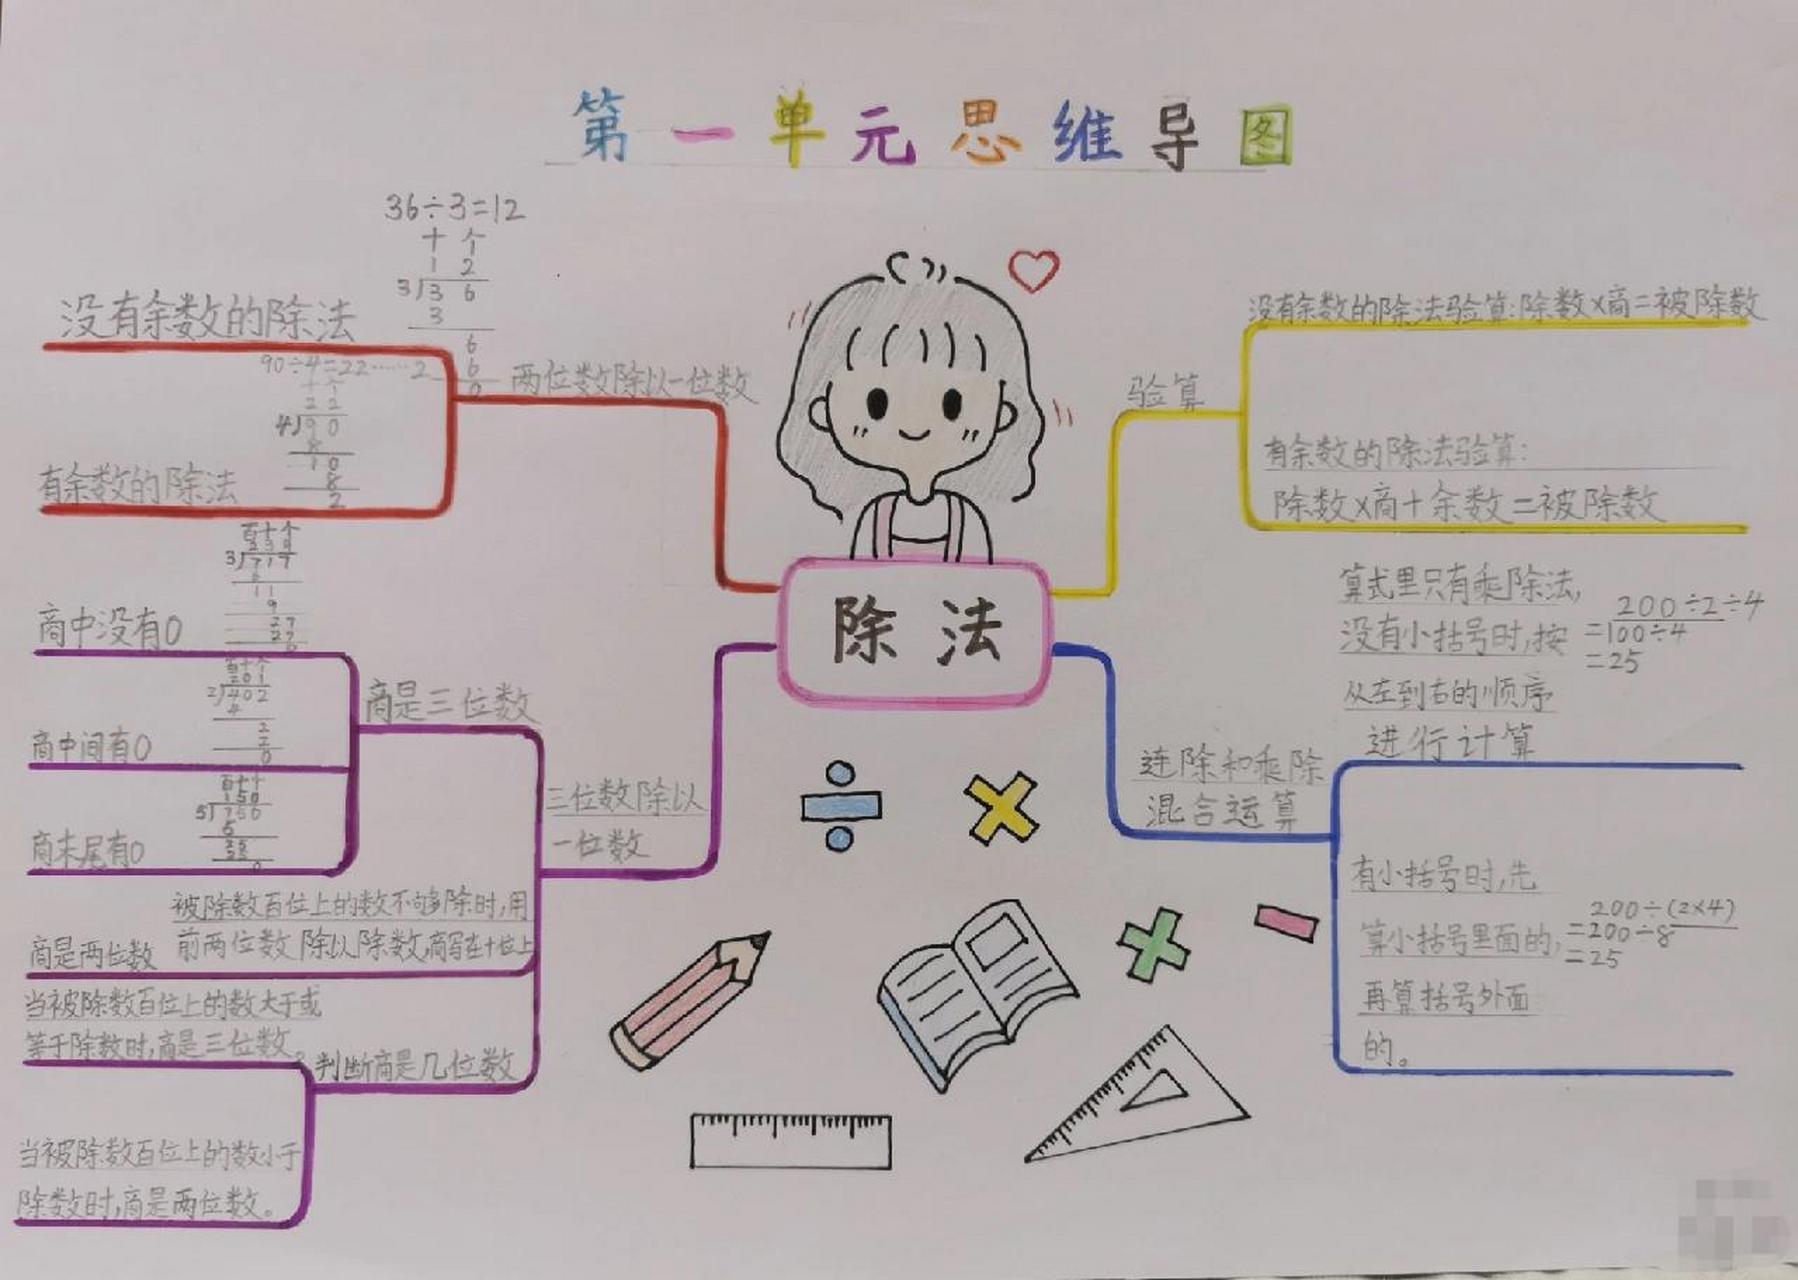 第一单元思维导图
36÷3=12
十 个
1 2
3 3 6
3
6
6
0
没有余数的除法
90÷4=22……2
十 个
2 2
4 9 0
8
1 0
8
2
两位数除以一位数
有余数的除法
百十个
3 717
6
11
9
27
27
商中没有0
百十个
201
2 402
4
2
2
0
商是三位数
商中间有0
百十个
150
5 750
5
25
25
0
商末尾有0
三位数除以
一位数
被除数百位上的数不够除时,用
前两位数除以除数,商写在十位上
商是两位数
当被除数百位上的数大于或
等于除数时,商是三位数。
判断商是几位数
当被除数百位上的数小于
除数时,商是两位数。
除法
验算
没有余数的除法验算:除数×商=被除数
有余数的除法验算:
除数×商+余数=被除数
连除和乘除
混合运算
算式里只有乘除法,
没有小括号时,按
从左到右的顺序
进行计算
200÷2÷4
=100÷4
=25
有小括号时,先
算小括号里面的,
再算括号外面
的。
200÷(2×4)
=200÷8
=25